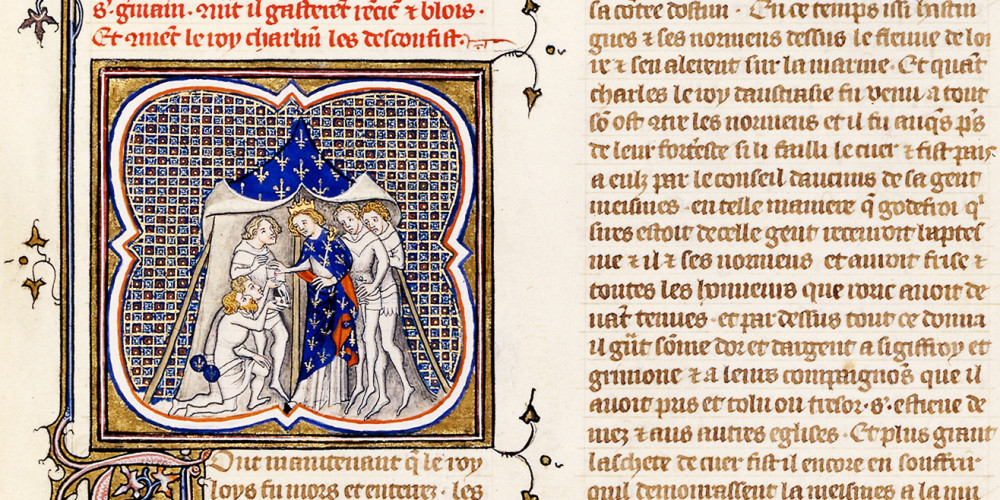 s. gmain. nuit il gasteret recie ⁊ blois.
Et puet le roy charlin les desconfist.
Out maintenant q̃ le roy
loys fu mors et enterez. les
sa cōtre dostun. En ce temps issi hastin
gues ⁊ ses normens dessus le fleuue de loi
re ⁊ sen alerent sur la marine. Et quāt
charles le roy daustrasie fu venu a tout
sō ost ꝯtre les normens et il fu auq̃s p̃s
de leur forteste si li failli le cuer ⁊ fist pais
a eulz par le conseil daucuns de sa gent
meismes. en telle maniere q̃ godefroi q̇
sires estoit decelle gent receuroit baptes
me ⁊ il ⁊ ses normens et auroit frise ⁊
toutes les honneurs que roric auoit de
uāt tenues. et par dessus tout ce donna
il grāt sōme dor et dargent a sigiffroy et
grimone ⁊ a leurs compaignōs que il
auoit pris et tolu ou tresor. s. estiene de
mez ⁊ aus autres eglises. Et plus grant
laschete de cuer fist il encore en souffrir
quil demourassent la meismes a la nui